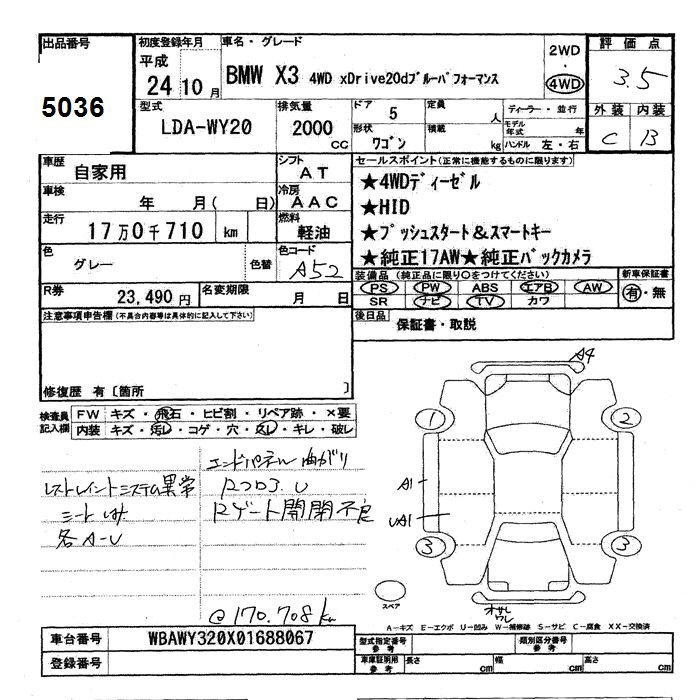 出品番号
5036
初度登録年月
平成
24 10 月
車名・グレード
BMW X3 4WD xDrive20dブルーパフォーマンス
2WD
・
4WD
評価点
3.5
型式
LDA-WY20
排気量
2000
CC
ドア 5
形状
ワゴン
定員
人
積載
kg
ディーラー・並行
モデル
年式 年
ハンドル 左・右
外装 内装
C B
車歴
自家用
シフト
AT
車検
年 月( 日)
冷房
AAC
走行
17万0千710 km
燃料
軽油
色
グレー
色替
色コード
A52
R券
23,490 円
名変期限
月 日
セールスポイント(正常に機能するものに限ります)
★4WDディーゼル
★HID
★プッシュスタート&スマートキー
★純正17AW★純正バックカメラ
装備品(純正品に限り○をつけてください)
PS PW ABS エアB AW
SR ナビ TV カワ
新車保証書
有・無
後日品
保証書・取説
注意事項申告欄(不具合内容等は具体的に記入して下さい)
修復歴 有〔箇所 〕
検査員
記入欄
FW キズ・飛石・ヒビ割・リペア跡・×要
内装 キズ・汚レ・コゲ・穴・スレ・キレ・破レ
レストレイントシステム異常
シート
各A-U
エンドパネル曲がり
Rフロア.U
Rゲート開閉不良
@170.708km
A4
1
2
A1
UA1
3
3
スペア
A-キズ E-エクボ U-凹み W-補修跡 S-サビ C-腐食 XX-交換済
車台番号
WBAWY320X01688067
登録番号
型式指定番号
参考
類別区分番号
参考
車庫証明用
参考
長さ cm
幅 cm
高さ cm